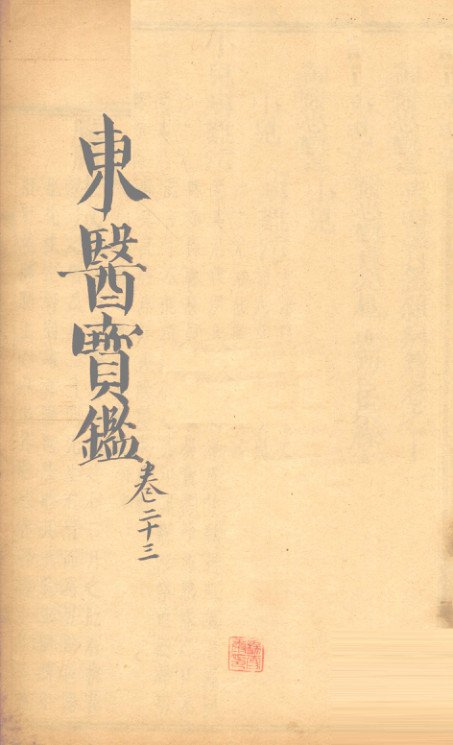 東醫寶鑑
卷二十三